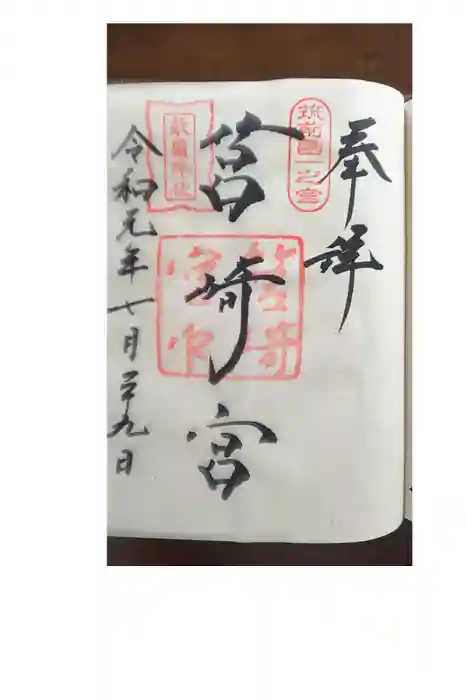 奉拝
筑前國一之宮
筥崎宮
筥崎宮印
敵國降伏
令和元年七月二十九日